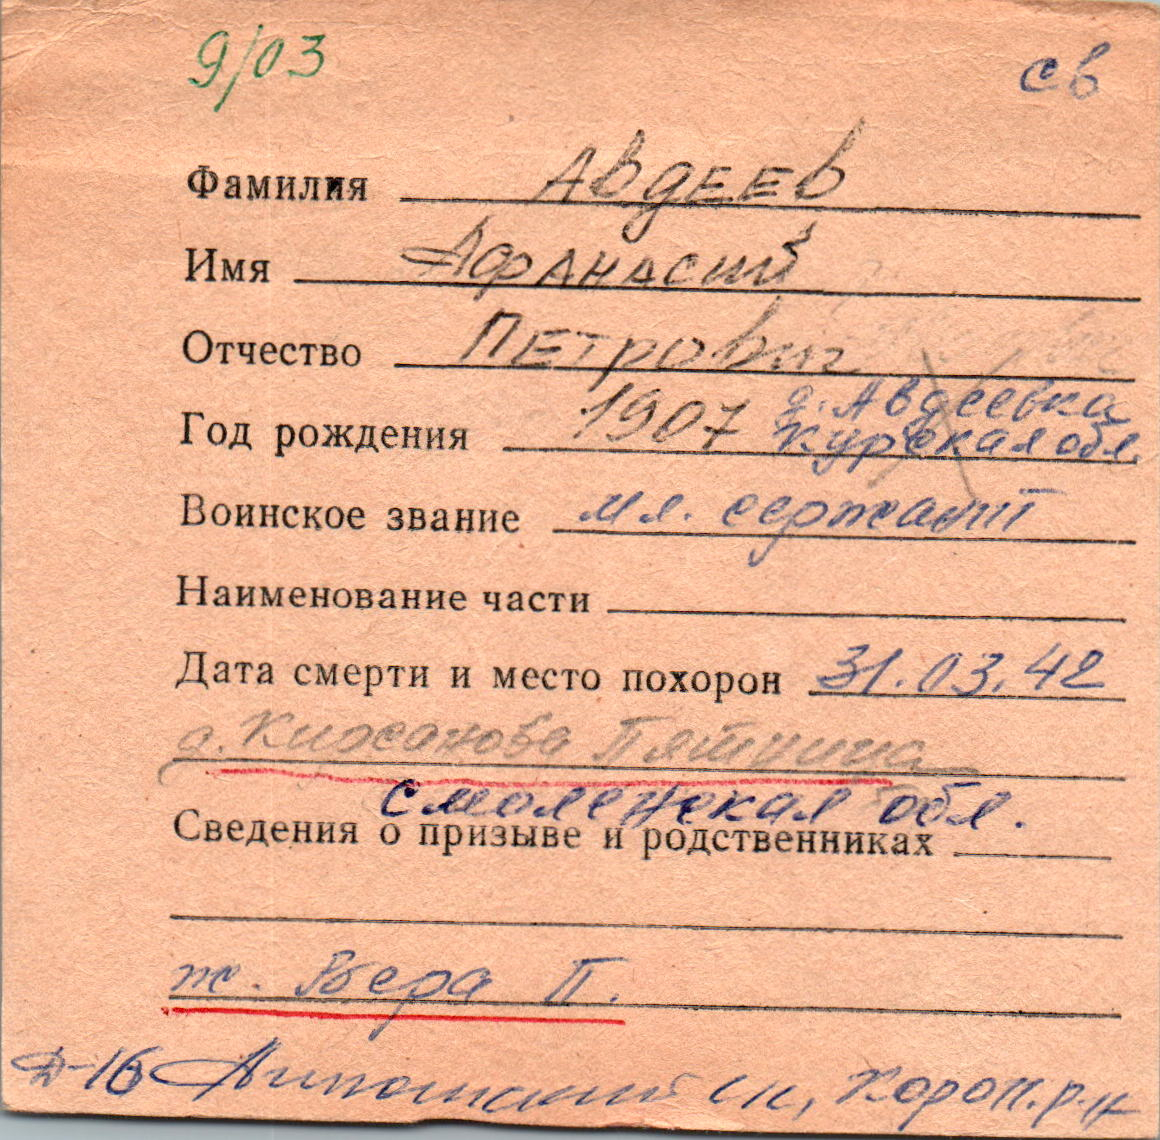 9/03 св
Фамилия Авдеев
Имя Афанасий
Отчество Петрович
д. Авдеевка
Год рождения 1907 Курская обл.
Воинское звание мл. сержант
Наименование части
Дата смерти и место похорон 31.03.42
д. Кирсанова Пятница
Смоленская обл.
Сведения о призыве и родственниках
ж. Вера П.
Д-16 с/с, Хорол. р-н